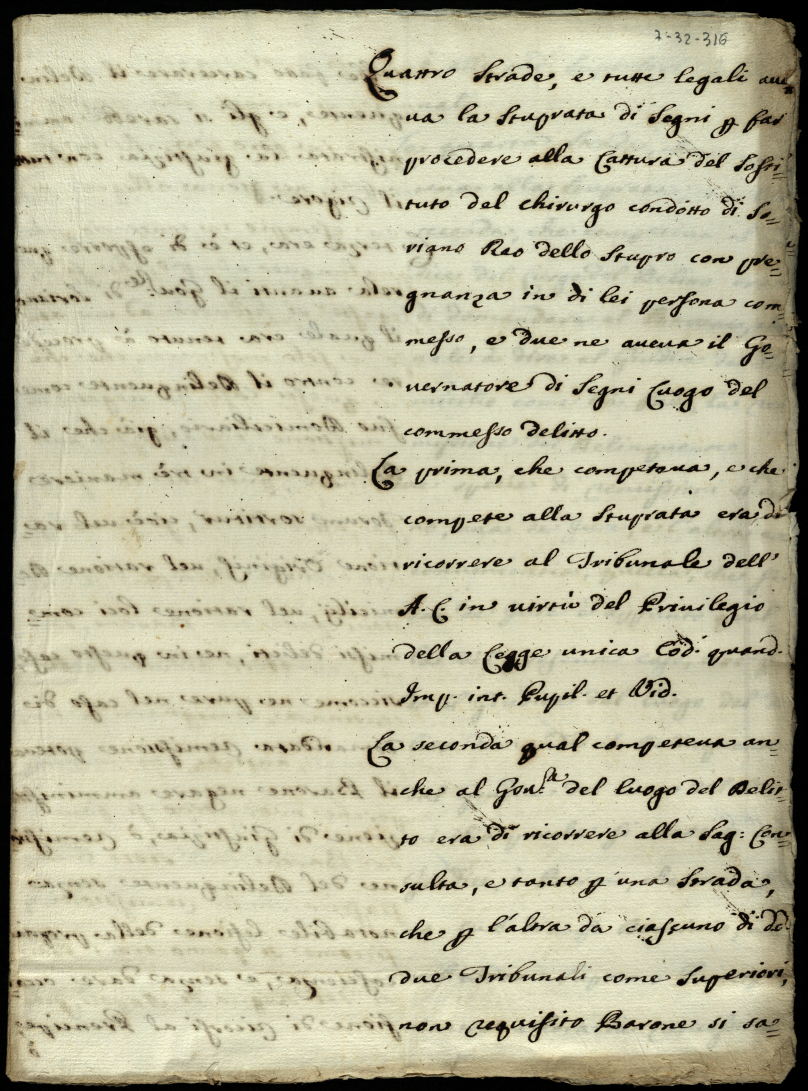 7-32-316
Quattro Strade, e tutte legali ave=
va la Stuprata di Segni p far
procedere alla Cattura del Sosti=
tuto del Chirurgo condotto di So=
riano Reo dello Stupro con pre=
gnanza in di lei persona com=
messo, e due ne aveva il Go=
vernatore di Segni Luogo del
commesso delitto.
La prima, che competeva, e che
compete alla Stuprata era di
ricorrere al Tribunale dell'
A. C. in virtù del Privilegio
della Legge unica Cod. quand.
Imp. int. Pupil. et Vid.
La seconda qual competeva an=
che al Gov.re del luogo del Delit=
to era di ricorrere alla Sag: Con=
sulta, e tanto p una Strada,
che p l'altra da ciascuno di dd.
due Tribunali come Superiori,
non requisito Barone si sa=